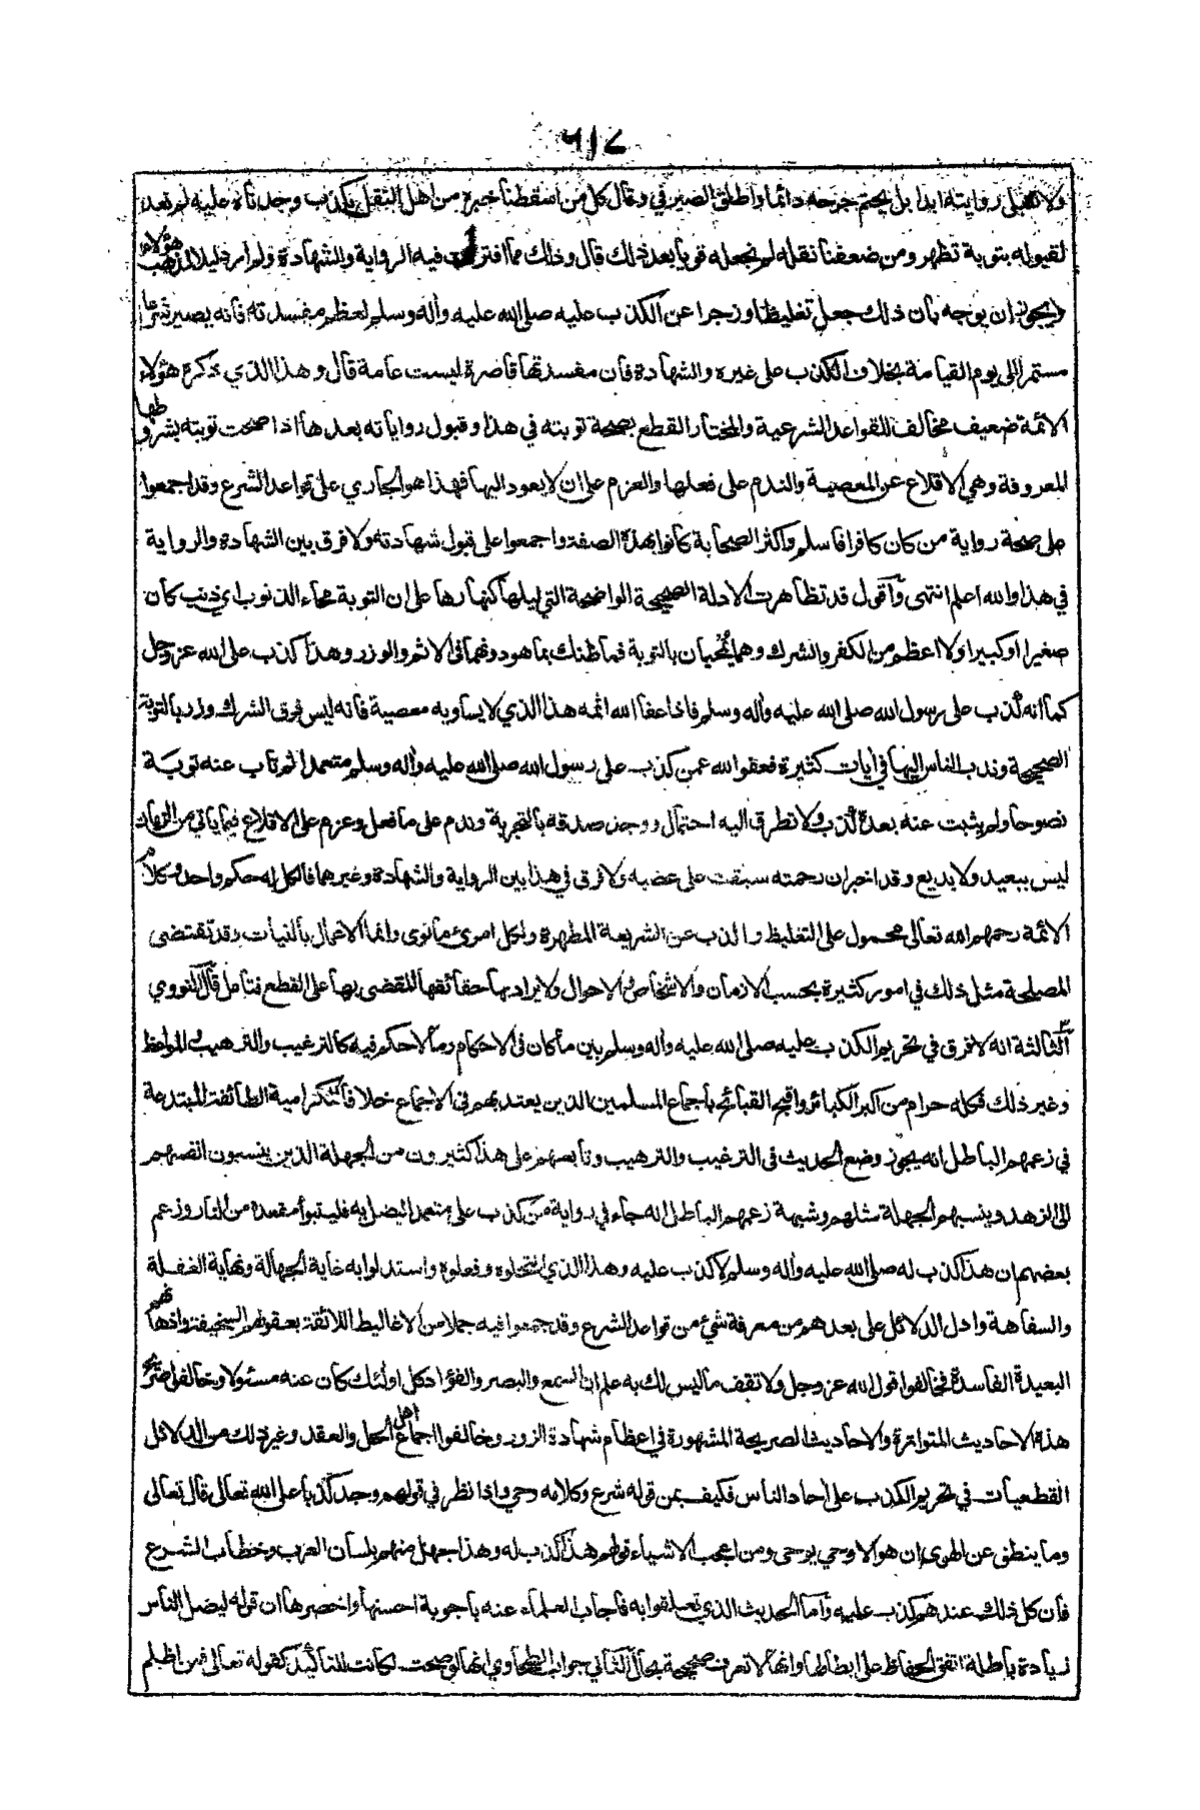 ٦١٧
ولا تقبل روايته ابدا بل يحتم جرحه دائما واطلق الصيرفي وقال كل من اسقطنا خبره من اهل النقل بكذب وجدناه عليه لم نعد
لقبوله بتوبة تظهر ومن ضعفنا نقله لم نجعله قويا بعد ذلك قال وذلك مما افترقت فيه الرواية والشهادة ولم أر دليلا لمذهب هؤلاء
ويجوز ان يوجه بان ذلك جعل تغليظا وزجرا عن الكذب عليه صلى الله عليه واله وسلم لعظم مفسدته فانه يصير شرعا
مستمرا الى يوم القيامة بخلاف الكذب على غيره والشهادة فان مفسدتها قاصرة ليست عامة قال وهذا الذي ذكره هؤلاء
الائمة ضعيف مخالف للقواعد الشرعية والمختار القطع بصحة توبته في هذا وقبول رواياته بعدها اذا صحت توبته بشروطها
المعروفة وهي الاقلاع عن المعصية والندم على فعلها والعزم على ان لا يعود اليها فهذا هو الجاري على قواعد الشرع وقد اجمعوا
على صحة رواية من كان كافرا فاسلم واكثر الصحابة كانوا بهذه الصفة واجمعوا على قبول شهادته ولا فرق بين الشهادة والرواية
في هذا والله اعلم انتهى وأقول قد تظاهرت الادلة الصحيحة الواضحة التي ليلها كنهارها على ان التوبة محاء الذنوب اي ذنب كان
صغيرا او كبيرا ولا اعظم من الكفر والشرك وهما يمحيان بالتوبة فما ظنك بما هو دونهما في الاثم والوزر وهذا كذب على الله عز وجل
كما انه كذب على رسول الله صلى الله عليه واله وسلم فاذا عفا الله اثمه هذا الذي لا يساويه معصية فانه ليس فوق الشرك وزر بالتوبة
الصحيحة وندب الناس اليها في أيات كثيرة فعفو الله عمن كذب على رسول الله صلى الله عليه واله وسلم متعمدا ثم تاب عنه توبة
نصوحا ولم يثبت عنه بعده كذب ولا تطرق اليه احتمال ووجد صدقه بالتجربة وندم على ما فعل وعزم على الاقلاع فيما ياتي من الزمان
ليس ببعيد ولا بديع وقد اخبر ان رحمته سبقت على غضبه ولا فرق في هذا بين الرواية والشهادة وغيرهما فالكل له حكم واحد وكلام
الائمة رحمهم الله تعالى محمول على التغليظ والذب عن الشريعة المطهرة ولكل امرئ ما نوى وانما الاعمال بالنيات وقد تقتضي
المصلحة مثل ذلك في امور كثيرة بحسب الازمان والاشخاص والاحوال ولا يراد بها حقائقها المقضي بها على القطع فتأمل قال النووي
الثالثة انه لا فرق في تحريم الكذب عليه صلى الله عليه واله وسلم بين ما كان في الاحكام وما لا حكم فيه كالترغيب والترهيب والمواعظ
وغير ذلك فكله حرام من اكبر الكبائر واقبح القبائح باجماع المسلمين الذين يعتد بهم في الاجماع خلافا للكرامية الطائفة المبتدعة
في زعمهم الباطل انه يجوز وضع الحديث في الترغيب والترهيب وتابعهم على هذا كثيرون من الجهلة الذين ينسبون انفسهم
الى الزهد وينسبهم الجهلة مثلهم وشبهة زعمهم الباطل انه جاء في رواية من كذب علي متعمدا ليضل به فليتبوأ مقعده من النار وزعم
بعضهم ان هذا كذب له صلى الله عليه واله وسلم لا كذب عليه وهذا الذي انتحلوه وفعلوه واستدلوا به غاية الجهالة ونهاية الغفلة
والسفاهة وادل الدلائل على بعدهم من معرفة شيء من قواعد الشرع وقد جمعوا فيه جملا من الاغاليط اللائقة بعقولهم السخيفة واذهانهم
البعيدة الفاسدة فخالفوا قول الله عز وجل ولا تقف ما ليس لك به علم ان السمع والبصر والفؤاد كل اولئك كان عنه مسئولا وخالفوا صريح
هذه الاحاديث المتواترة والاحاديث الصريحة المشهورة في اعظام شهادة الزور وخالفوا اجماع اهل الحل والعقد وغير ذلك من الدلائل
القطعيات في تحريم الكذب على أحاد الناس فكيف بمن قوله شرع وكلامه وحي واذا نظر في قولهم وجد كذبا على الله تعالى قال تعالى
وما ينطق عن الهوى ان هو الا وحي يوحى ومن اعجب الاشياء قولهم هذا كذب له وهذا جهل منهم بلسان العرب وخطاب الشرع
فان كل ذلك عندهم كذب عليه وأما الحديث الذي تعلقوا به فاجاب العلماء عنه باجوبة احسنها واخصرها ان قوله ليضل الناس
زيادة باطلة اتفق الحفاظ على ابطالها وانها لا تعرف صحيحة بحال الثاني جواب الطحاوي انها لو صحت لكانت للتأكيد كقوله تعالى فمن اظلم